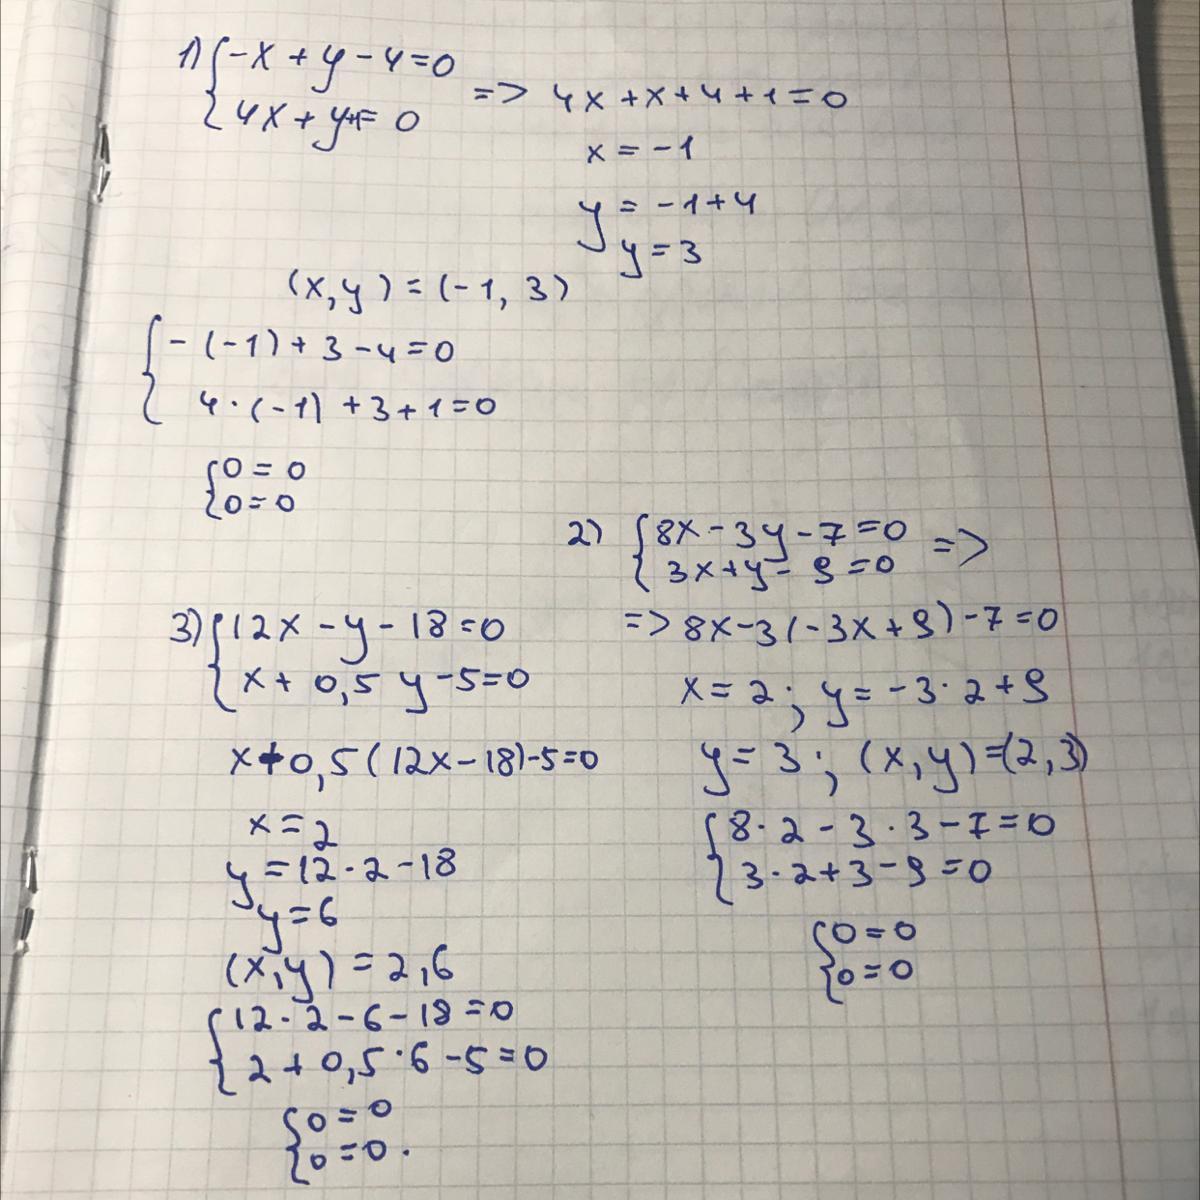 1) {-x + y - 4 = 0
{4x + y+1= 0
=> 4x + x + 4 + 1 = 0
x = -1
y = -1 + 4
y = 3
(x, y) = (-1, 3)
{- (-1) + 3 - 4 = 0
4 · (-1) + 3 + 1 = 0
{0 = 0
0 = 0
2) {8x - 3y - 7 = 0
3x + y - 9 = 0 =>
=> 8x - 3(-3x + 9) - 7 = 0
x = 2; y = -3 · 2 + 9
y = 3; (x, y) = (2, 3)
{8 · 2 - 3 · 3 - 7 = 0
3 · 2 + 3 - 9 = 0
{0 = 0
0 = 0
3) {12x - y - 18 = 0
x + 0,5 y - 5 = 0
x + 0,5 (12x - 18) - 5 = 0
x = 2
y = 12 · 2 - 18
y = 6
(x, y) = 2, 6
{12 · 2 - 6 - 18 = 0
2 + 0,5 · 6 - 5 = 0
{0 = 0
0 = 0.